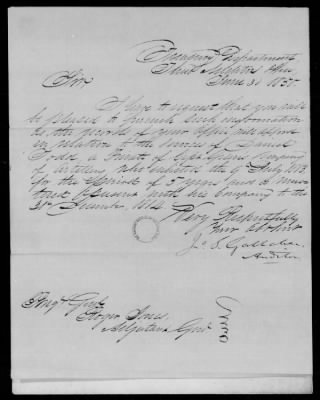 Treasury Department
Third Auditors Office
June 30 1850.
Sir
I have to request that you will
be pleased to furnish such information
as the records of your Office will afford
in relation to the service of Samuel
a private of Company
of Artillery who enlisted the 9 July 1812
for the period of 5 years and is
with his company to the
31st December 1814
Very Respectfully
Your Obt Sert
Jn. S. Gallaher
Auditor
Brigr Genl
Roger Jones
Adjutant Genl